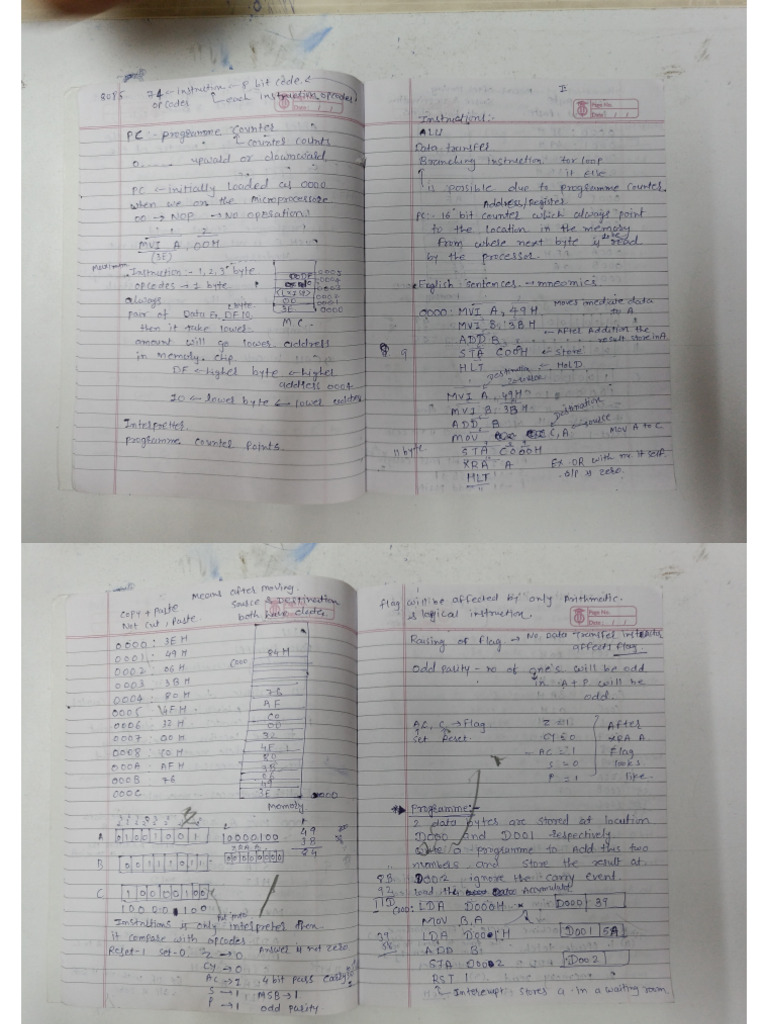 8085 74 ← Instruction ← 8 bit code.
opcodes each instruction opcodes
PC :- programme counter
counter counts
0...... upward or downward
PC ← initially loaded as 0000
when we on the microprocessore
00 → NOP → No operation
1 2
MVI A, 00H
(3E)
Maximum
Instruction :- 1, 2, 3 byte
opcodes → 1 byte
always
pair of Data Ex, DF 10,
then it take lower
amount will go lower address
in memory chip
M C.
DF ← higher byte ← higher
address 0004
10 ← lower byte ← lower
Interpretter
programme counter points.
Instruction :-
ALU
Data transfer
Branching instruction for loop
if else
is possible due to programme counter.
Address/Register
PC :- 16 bit counter which always point
to the location in the memory
from where next byte is read
by the processor.
English sentences → mneomics.
0000: MVI A, 49H Moves imediate data to A
MVI B, 3BH ← After Addition the result store in A
ADD B
9 STA C000H ← Store
HLT ← HOLD
Destination source
MVI A, 49H
MVI B, 3BH
ADD, B
MOV C, A Destination source MOV A to C
11 byte STA C000H
XRA A EX OR with no. it self
O/P is zero.
HLT
Means after moving.
Copy + paste Source & Destination
Not Cut + Paste both have
0000: 3E H
0001: 49 H
0002: 06 H
0003: 3B H
0004: 80 H
0005 4F H
0006 32 H
0007 00 H
0008 C0 H
000A AF H
000B 76
000C
C000 84 H
76
AF
C0
00
32
4F
80
3B
06
49
3E 0000
Memory
A 01001001 10000100 49
38
84
B 00111011 00000000
C 10000100
10000100
Instructions is only interpreter then
it compare with opcodes
Reset-1 Set-0 Z → 0 Answer is not zero
CY → 0
AC → 1 4 bit pass carry
S → 1 MSB → 1
P → 1 odd parity.
flag will be affected by only Arithmetic
& logical instruction.
Raising of flag → No Data Transfer instruction
affects flag.
Odd parity - no of one's will be odd
in A + P will be
odd.
AC, C → Flag Z = 1 After
Set Reset. CY = 0 XRA A
AC = 1 flag
S = 0 looks
P = 1 like.
Programme:-
2 data bytes are stored at location
D000 and D001 respectively.
Write a programme to add this two
numbers and store the result at
D002 ignore the carry event.
8B
92 Load the Accumulator
11D C000: LDA D000H D000 39
MOV B, A
37 LDA D001H D001 5A
ADD B
STA D002 D002
RST 1
Interrupt stores a in a waiting room